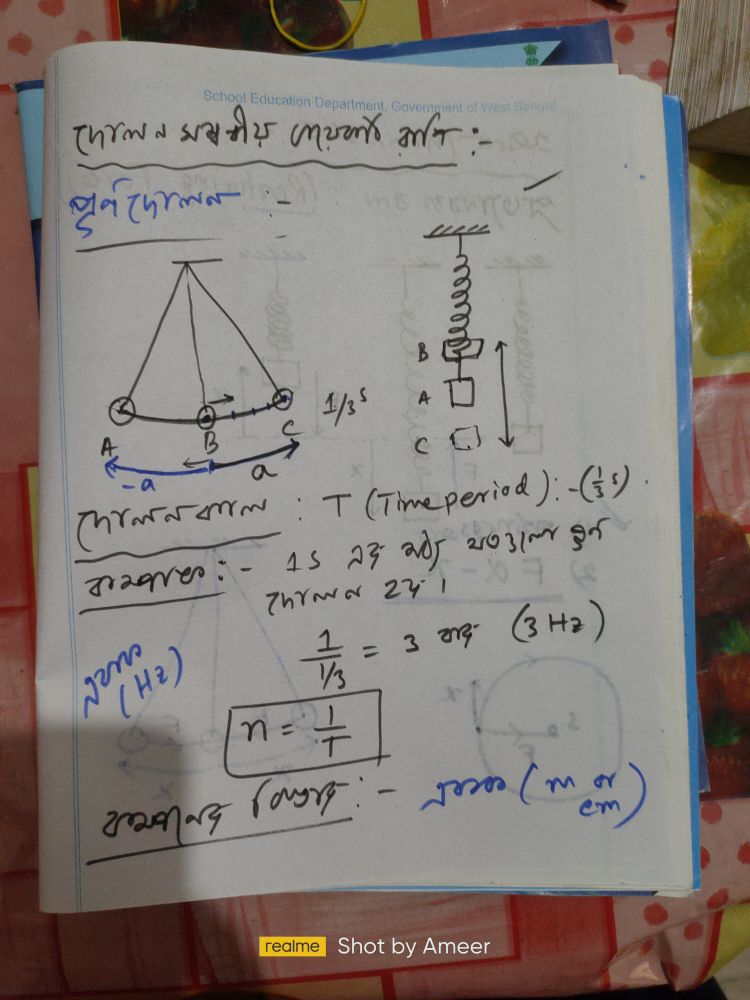 School Education Department, Government of West Bengal
দোলন সম্বন্ধীয় কয়েকটি রাশি :-
পূর্ণ দোলন :-
B
A
C
1/3 s
A B C
-a a
দোলনকাল : T (Time period) : - (1/3 s)
কম্পাঙ্ক : - 1s এর মধ্যে যতগুলো পূর্ণ
দোলন হয়।
1/1/3 = 3 বার (3 Hz)
একক
(Hz)
n = 1/T
কম্পনের বিস্তার : - একক (m or
cm)
realme Shot by Ameer